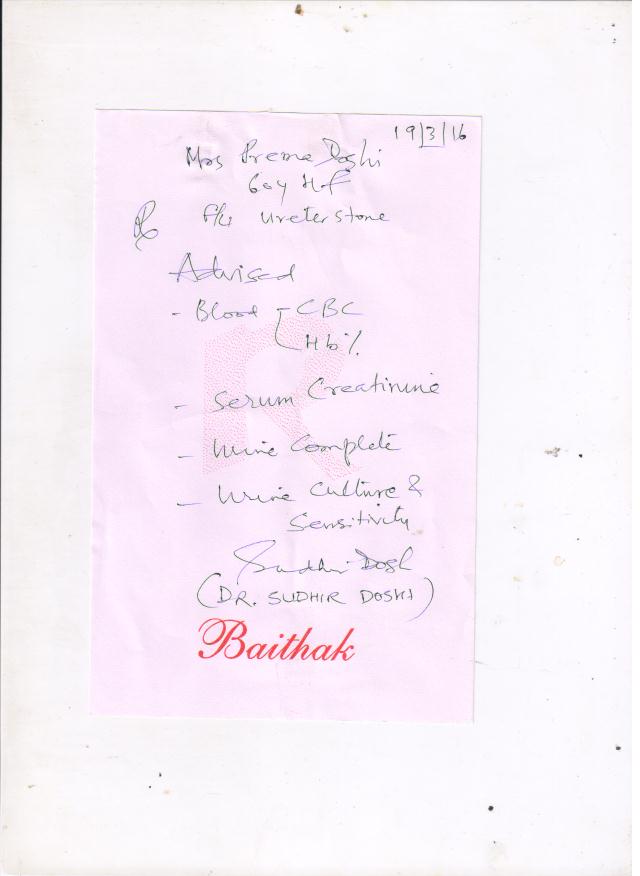 19/3/16
Mrs Prema Doshi
60y H/F
Rx F/U Ureter stone
Advised
- Blood - CBC
Hb%
- Serum Creatinine
- Urine Complete
- Urine Culture &
Sensitivity
Sudhir Doshi
(DR. SUDHIR DOSHI)
R
Baithak